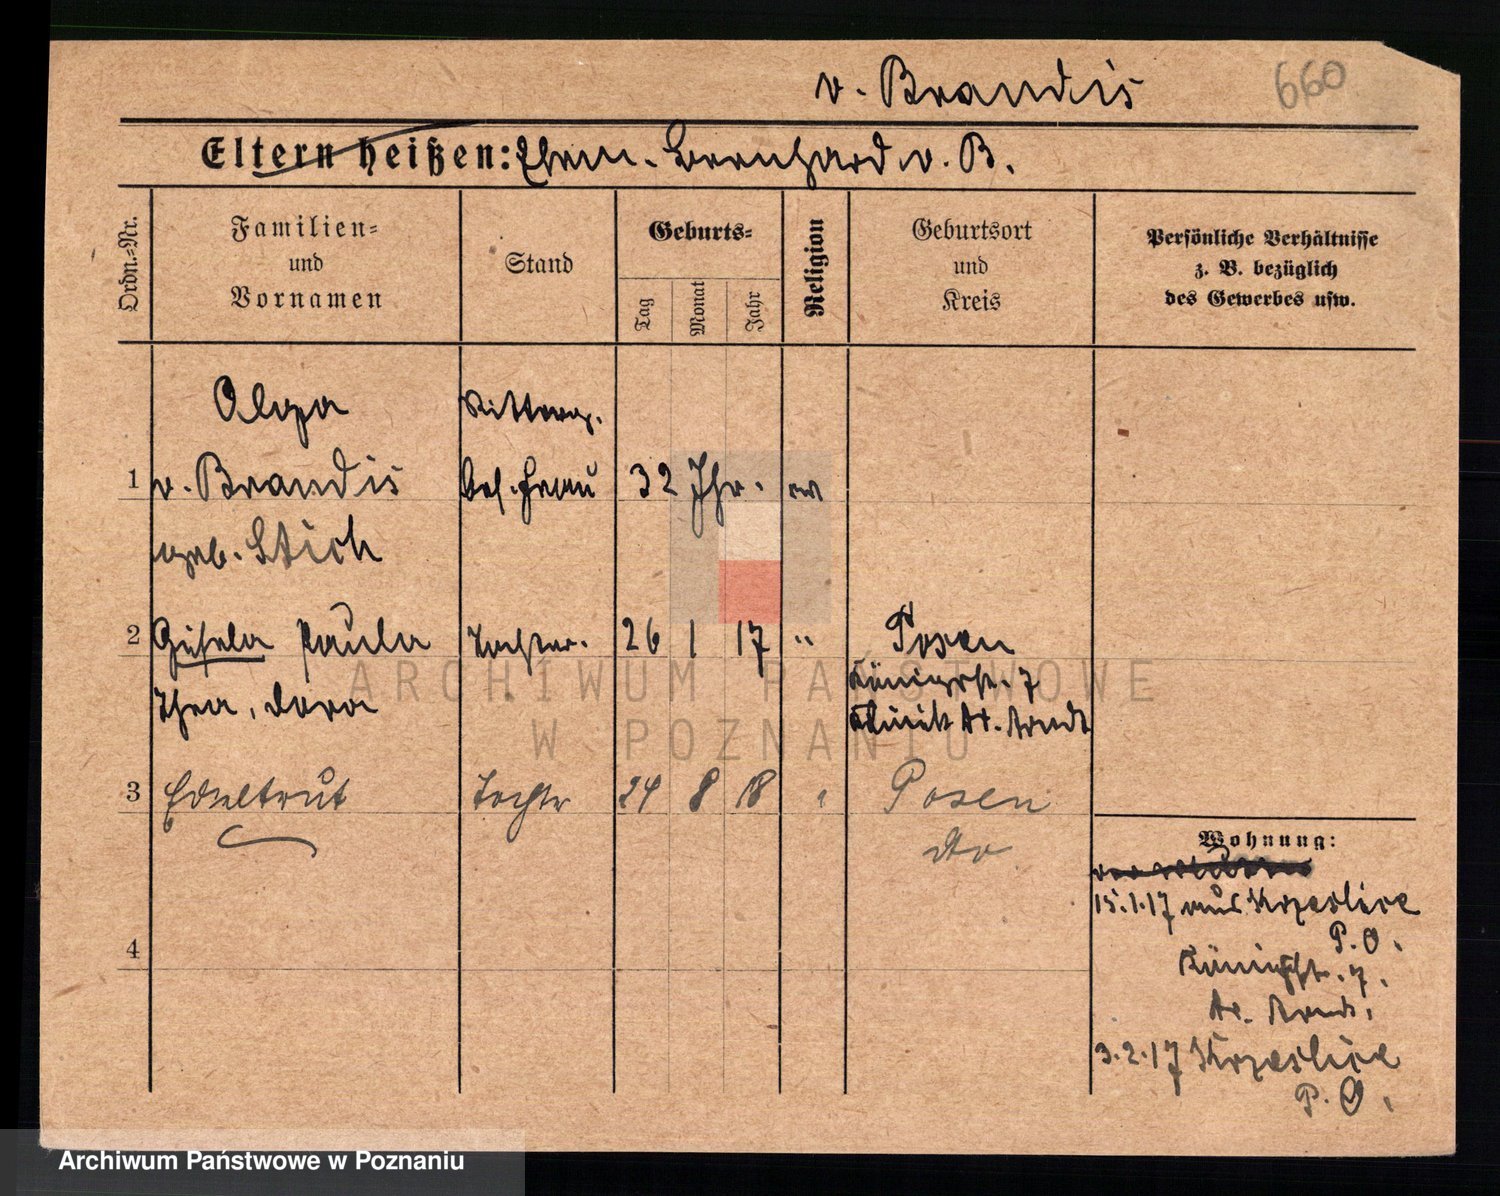 v. Brandis
660
Eltern heißen: Ehem. Bernhard v. B.
Ordn.-Nr.
Familien-
und
Vornamen
Stand
Geburts-
Tag
Monat
Jahr
Religion
Geburtsort
und
Kreis
Persönliche Verhältnisse
z. B. bezüglich
des Gewerbes usw.
Olga
Ritterg.
1 v. Brandis Bes. Frau 32 Jhr. ev
geb. Stich
2 Gisela Paula Tochter. 26 1 17 " Posen
Thea, Dora
Königstr. 7
Klinik Dr. Arndt
3 Edeltrut Tochter 24 8 18 " Posen
do
4
Wohnung:
15.1.17 aus Krzeslice
P. O.
Königstr. 7.
Dr. Arndt.
3.2.17 Krzeslice
P. O.
ARCHIWUM PAŃSTWOWE
W POZNANIU
Archiwum Państwowe w Poznaniu